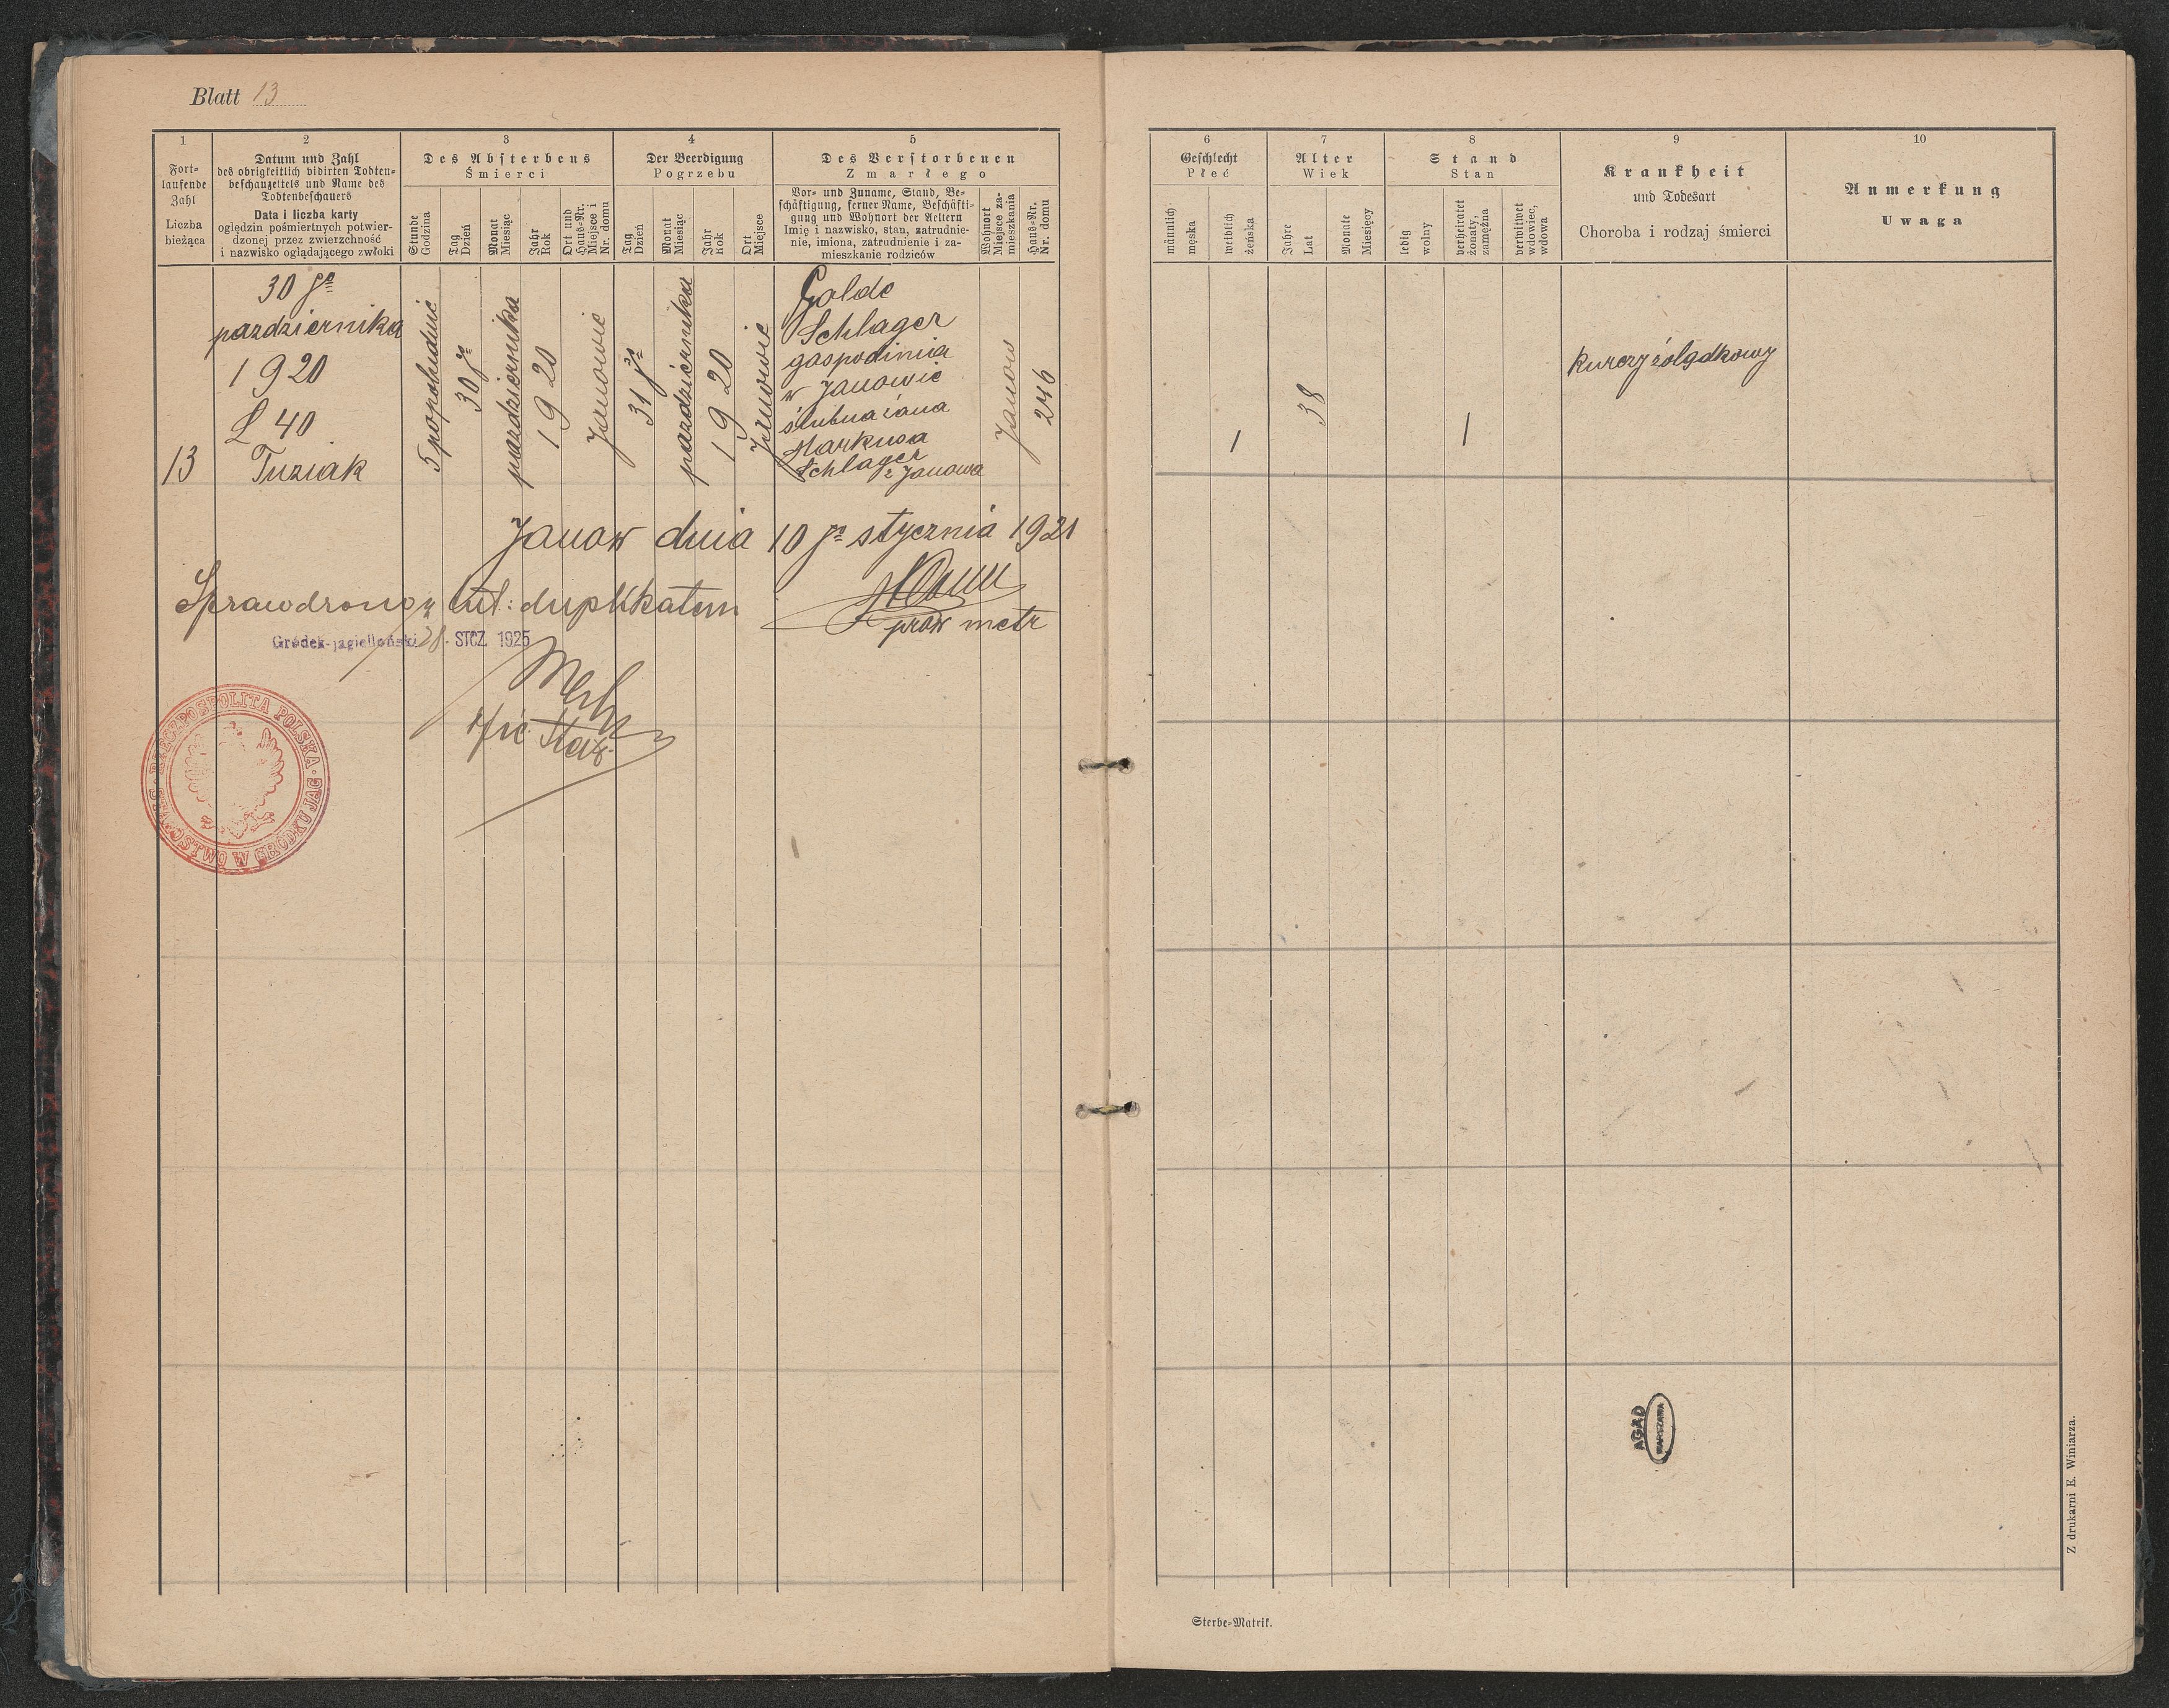 Blatt 13
1
Fort-
laufende
Zahl
Liczba
bieżąca
2
Datum und Zahl
des obrigkeitlich vidirten Todten-
beschauzettels und Name des
Todtenbeschauers
Data i liczba karty
oględzin pośmiertnych potwier-
dzonej przez zwierzchność
i nazwisko oglądającego zwłoki
3
Des Absterbens
Śmierci
Stunde
Godzina
Tag
Dzień
Monat
Miesiąc
Jahr
Rok
Ort und
Haus-Nr.
Miejsce i
Nr. domu
4
Der Beerdigung
Pogrzebu
Tag
Dzień
Monat
Miesiąc
Jahr
Rok
Ort
Miejsce
5
Des Verstorbenen
Zmarłego
Vor- und Zuname, Stand, Be-
schäftigung, ferner Name, Beschäfti-
gung und Wohnort der Aeltern
Imię i nazwisko, stan, zatrudnie-
nie, imiona, zatrudnienie i za-
mieszkanie rodziców
Wohnort
Miejsce za-
mieszkania
Haus-Nr.
Nr. domu
6
Geschlecht
Płeć
männlich
męska
weiblich
żeńska
7
Alter
Wiek
Jahre
Lat
Monate
Miesięcy
8
Stand
Stan
ledig
wolny
verheiratet
żonaty,
zamężna
verwitwet
wdowiec,
wdowa
9
Krankheit
und Todesart
Choroba i rodzaj śmierci
10
Anmerkung
Uwaga
13
30 go
pazdziernika
1920
L 40
Tuziak
5 popołudnie
30 go
pazdziernika
1920
Janowie
31 go
pazdziernika
1920
Janowie
Golde
Schlager
gospodinia
w Janowie
ślubna żana
Markusa
Schlager
z Janowa
Janow
246
1
38
1
kurczy żołądkowy
Janow dnia 10 go stycznia 1921
Sprawdzono z duplikatem
praw metr
Gródek-jagielloński 28. STCZ. 1925
RZECZPOSPOLITA POLSKA · STAROSTWO W GRÓDKU JAG.
AGAD
WARSZAWA
Z drukarni E. Winiarza.
Sterbe-Matrik.